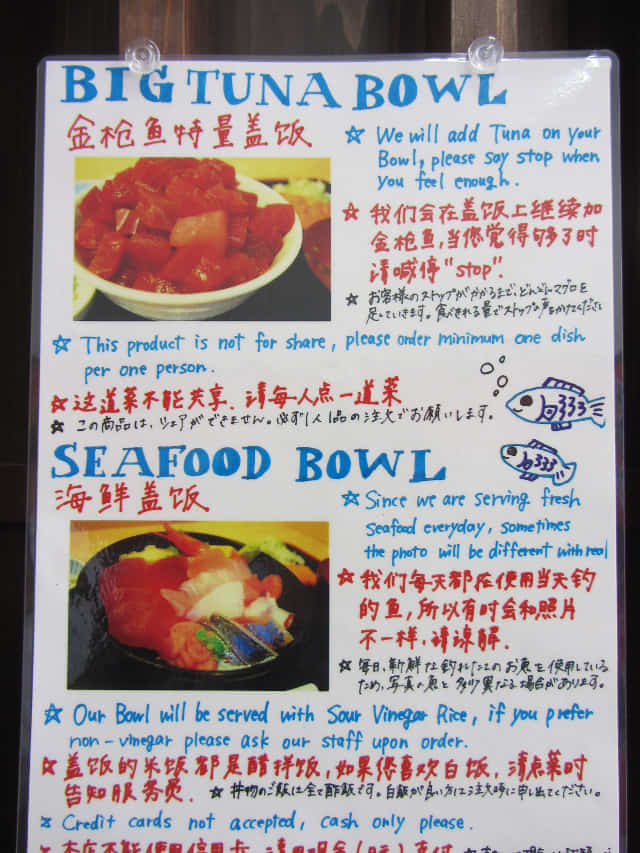 BIG TUNA BOWL
金枪鱼特量盖饭
☆ We will add Tuna on your
Bowl, please say stop when
you feel enough.
☆ 我们会在盖饭上继续加
金枪鱼,当您觉得够了时
请喊停"stop".
☆ お客様のストップがかかるまで、どんどんマグロを
足していきます。食べきれる量でストップと声をかけてください
☆ This product is not for share, please order minimum one dish
per one person.
☆ 这道菜不能共享. 请每人点一道菜
☆ この商品は、シェアができません。必ず1人1品の注文でお願いします。
SEAFOOD BOWL
海鲜盖饭
☆ Since we are serving fresh
seafood everyday, sometimes
the photo will be different with real
☆ 我们每天都在使用当天钓
的鱼,所以有时会和照片
不一样,请谅解.
☆ 毎日、新鮮な釣れたてのお魚を使用している
ため、写真の魚と多少異なる場合があります。
☆ Our Bowl will be served with Sour Vinegar Rice, if you prefer
non-vinegar please ask our staff upon order.
☆ 盖饭的米饭都是醋拌饭,如果您喜欢白饭,请点菜时
告知服务员. ☆ 丼物のご飯は全て酢飯です。白飯が良い方はご注文時に申し出てください。
☆ Credit cards not accepted, cash only please.
☆ 本店不能使用信用卡